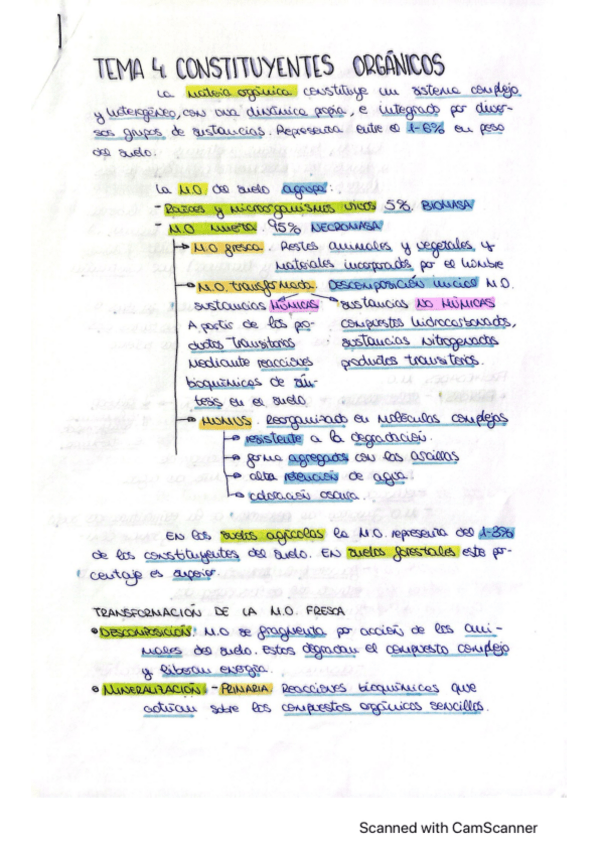 TEMA 4. CONSTITUYENTES ORGÁNICOS
La materia orgánica constituye un sistema complejo
y heterogéneo, con una dinámica propia, e integrado por diver-
sos grupos de sustancias. Representa entre el 1-6% en peso
del suelo.
La M.O. del suelo agrupa:
- Raíces y microorganismos vivos 5% BIOMASA
- M.O. muerta. 95% NECROMASA
→ M.O fresca. Restos animales y vegetales y
materiales incorporados por el hombre
→ M.O. transformada. Descomposición inicial M.O.
sustancias HÚMICAS
A partir de los pro-
ductos transitorios
mediante reacciones
bioquímicas de sín-
tesis en el suelo.
sustancias NO HÚMICAS
compuestos hidrocarbonados,
sustancias nitrogenados
productos transitorios.
→ HUMUS. Reorganizado en moléculas complejas
→ resistente a la degradación.
→ forma agregados con las arcillas
→ alta retención de agua.
→ coloración oscura.
En los suelos agrícolas la M.O. representa del 1-3%
de los constituyentes del suelo. En suelos forestales este por-
centaje es superior.
TRANSFORMACIÓN DE LA M.O. FRESCA
• DESCOMPOSICIÓN. M.O se fragmenta por acción de los ani-
males del suelo. Estos degradan el compuesto complejo
y liberan energía.
• MINERALIZACIÓN. - PRIMARIA. Reacciones bioquímicas que
actúan sobre los compuestos orgánicos sencillos.
Scanned with CamScanner